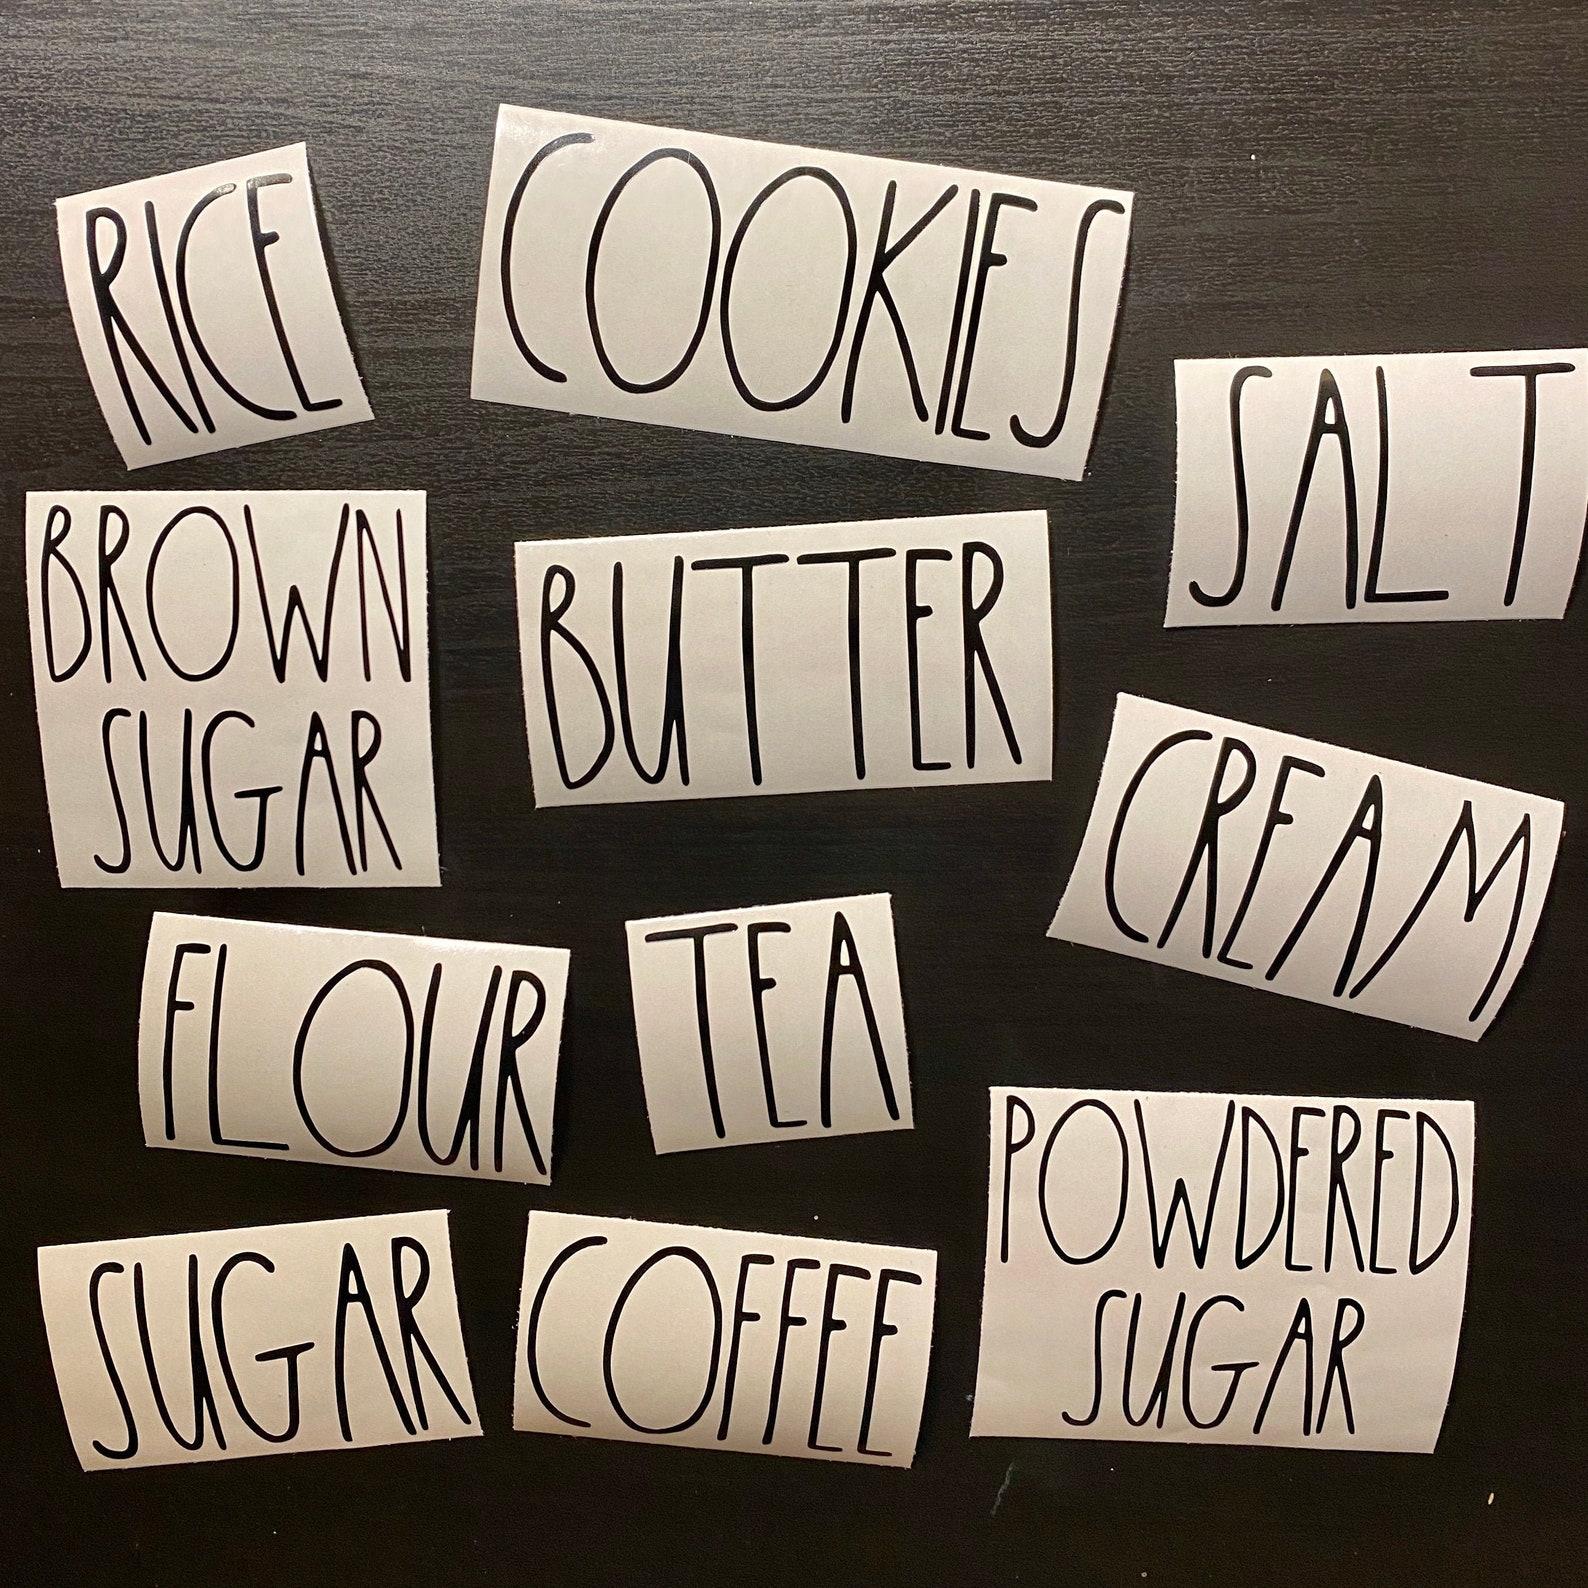 RICE
COOKIES
SALT
BROWN
SUGAR
BUTTER
CREAM
FLOUR
TEA
POWDERED
SUGAR
SUGAR
COFFEE